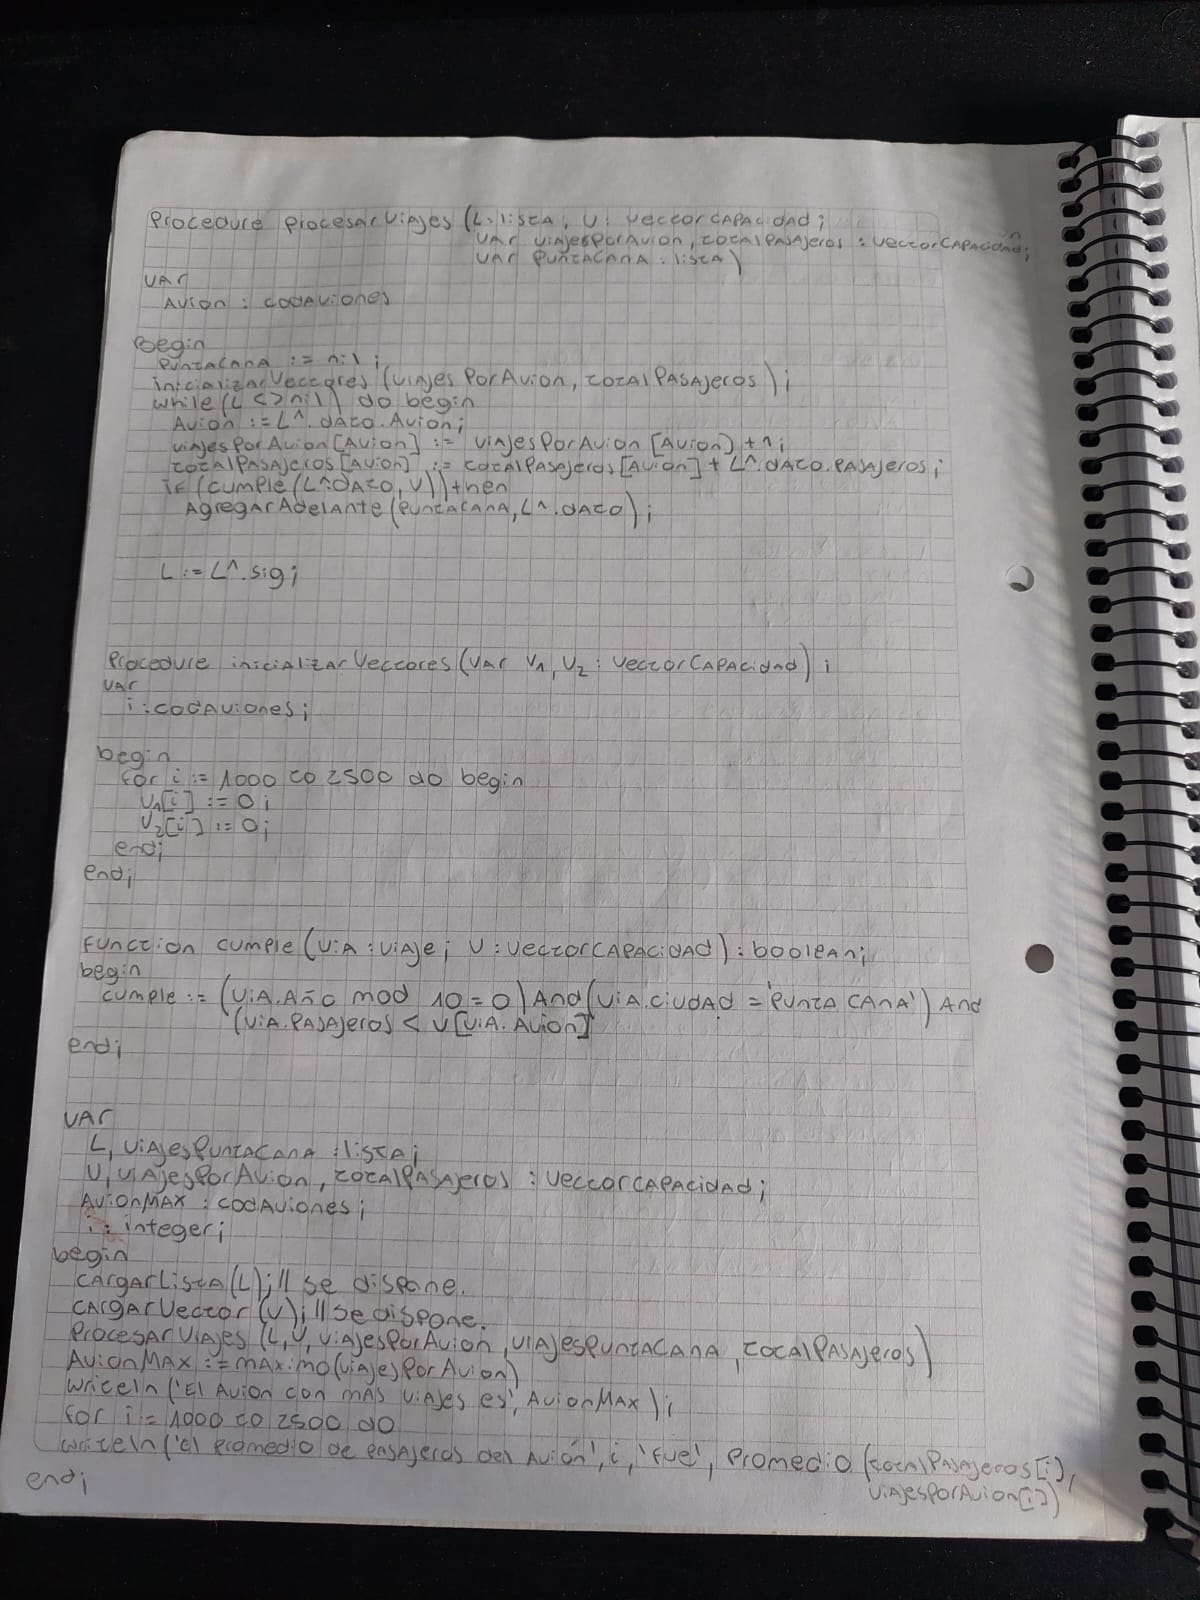 Procedure procesarViajes (L:lista; V: vectorCAPACidAd;
VAr viajesPorAvion, totalPASAjeros : vectorCAPACidAd;
VAr PuntACAnA : listA)
VAr
Avion : codAviones
begin
PuntACAnA := nil;
inicializarVectores (viAjesPorAvion, totalPASAjeros);
while (L <> nil) do begin
Avion := L^.dAto.Avion;
viAjesPorAvion[Avion] := viAjesPorAvion [Avion] +1;
totalPASAjeros[Avion] := totalPASAjeros[Avion] + L^.dAto.PASAjeros;
if (cumple (L^.dAto, V)) then
AgregarAdelante (PuntACAnA, L^.dAto);
L := L^.sig;
Procedure inicializarVectores (VAr V1, V2 : vectorCAPACidAd);
VAr
i : codAviones;
begin
for i := 1000 to 2500 do begin
V1[i] := 0;
V2[i] := 0;
end;
end;
Function cumple (ViA : ViAje; V : VectorCAPACidAd) : booleAn;
begin
cumple := (ViA.Año mod 10 = 0) And (ViA.ciudAd = 'PuntA CAnA') And
(ViA.PASAjeros < V [ViA.Avion]
end;
VAr
L, ViAjesPuntACAnA : listA;
V, ViAjesPorAvion, totalPASAjeros : VectorCAPACidAd;
AvionMAX : codAviones;
i : integer;
begin
CArgArListA (L); // se dispone.
CArgArVector (V); // se dispone.
ProcesArViAjes (L, V, ViAjesPorAvion, ViAjesPuntACAnA, totalPASAjeros)
AvionMAX := mAximo (viAjesPorAvion)
writeln ('El Avion con mAs viAjes es', AvionMAX);
for i = 1000 to 2500 do
writeln ('El promedio de PASAjeros del Avión', i, 'Fue', Promedio (totalPASAjeros[i],
ViAjesPorAvion[i])
end;